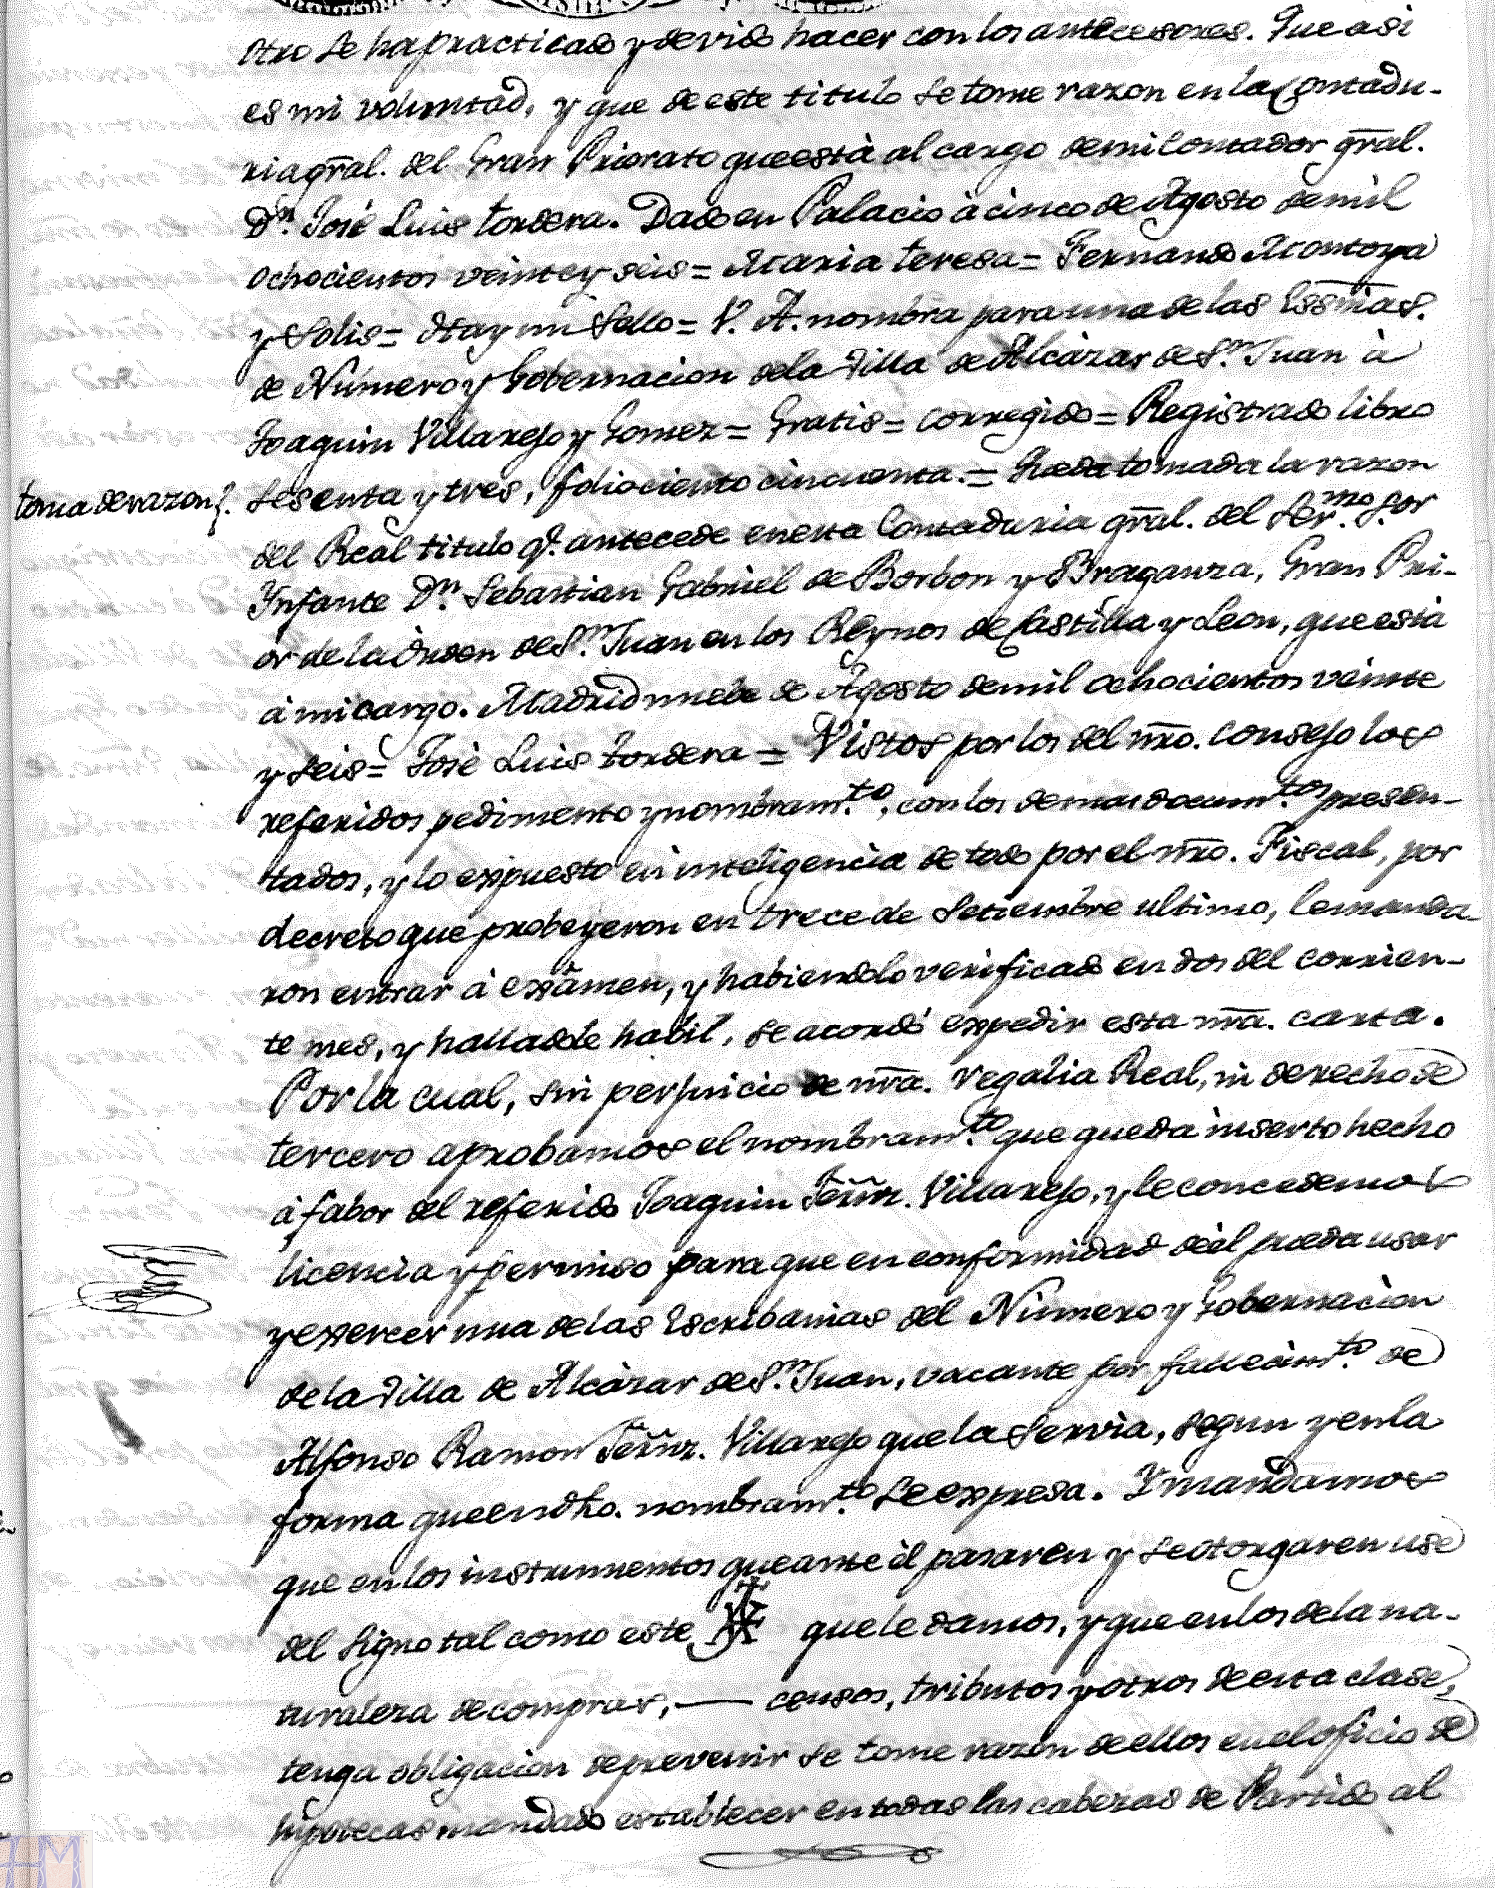 otro se ha practicado y devido hacer con los antecesores. Que asi
es mi voluntad, y que de este titulo se tome razon en la Contadu-
ria gr̄al. del Gran Priorato que està al cargo de mi Contador gr̄al.
Dn. José Luis Tordera. Dado en Palacio à cinco de Agosto de mil
ochocientos veinte y seis = Maria Teresa = Fernando Montoya
y Solis = Hay un Sello = V. A. nombra para una de las Essnias.
de Número y Gobernacion de la Villa de Alcázar de Sn. Juan à
Joaquin Villarejo y Gomez = Gratis = corregido = Registrado libro
toma de razon}. sesenta y tres, folio ciento cincuenta. = Queda tomada la razon
del Real titulo q̄. antecede en esta Contaduria gr̄al. del Ser.mo S.or
Ynfante Dn. Sebastian Gabriel de Borbon y Braganza, Gran Pri-
or de la Orden de Sn. Juan en los Reynos de Castilla y Leon, que està
à mi cargo. Madrid nuebe de Agosto de mil ochocientos veinte
y seis = José Luis Tordera = Vistos por los del nr̄o. Consejo los
referidos pedimento y nombram.to, con los demas docum.tos presen-
tados, y lo expuesto en inteligencia de todo por el nr̄o. Fiscal, por
decreto que probeyeron en trece de Setiembre ultimo, le manda-
ron entrar à exâmen, y habiendolo verificado en dos del corrien-
te mes, y halladole habil, se acordó expedir esta nr̄a. carta.
Por la cual, sin perjuicio de nr̄a. regalia Real, ni derecho de
tercero aprobamos el nombram.to que queda inserto hecho
à fabor del referido Joaquin Fernz. Villarejo, y le concedemos
licencia y permiso para que en conformidad de él pueda usar
y exercer una de las Escribanias del Número y Gobernacion
de la Villa de Alcázar de Sn. Juan, vacante por fallecim.to de
Alfonso Ramon Fernz. Villarejo que la servia, segun y en la
forma que en dho. nombram.to se expresa. Y mandamos
que en los instrumentos que ante él pasaren y se otorgaren use
del signo tal como este que le damos, y que en los de la na-
turaleza de compras, censos, tributos y otros de esta clase,
tenga obligacion de prevenir se tome razon de ellos en el oficio de
hipotecas mandado establecer en todas las cabezas de Partido al